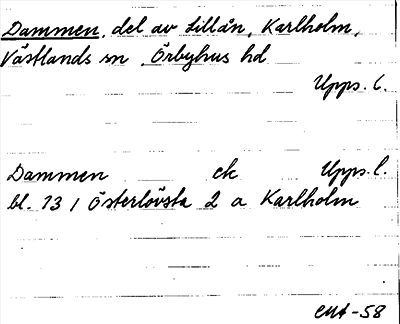 Dammen, del av Lillån, Karlholm,
Västlands sn Örbyhus hd
Upps. l.
Dammen ek Upps. l.
bl. 73 / Österlövsta 2 a Karlholm
-58